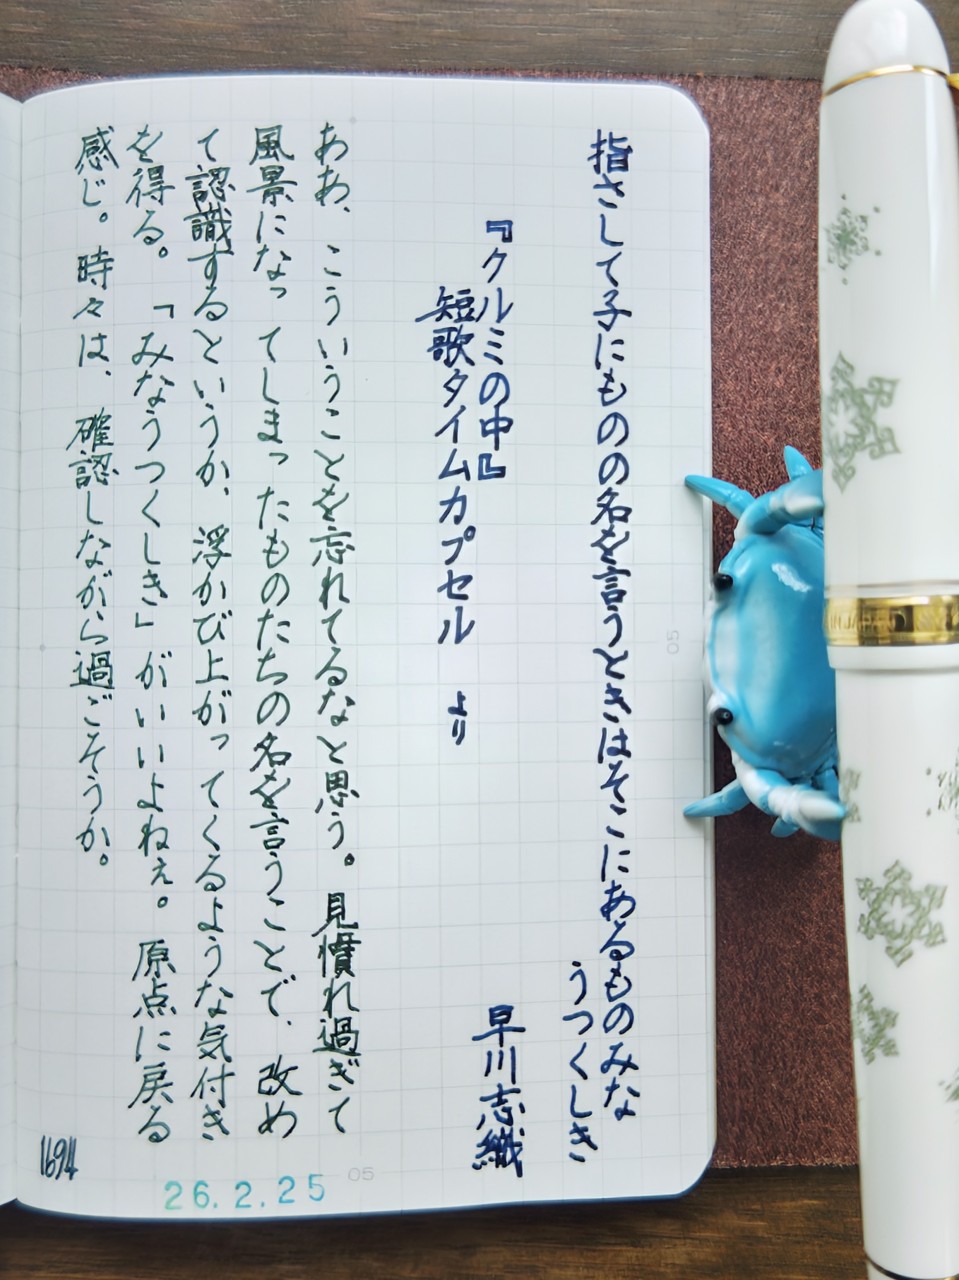 指さして子にものの名を言うときはそこにあるものみな
うつくしき
『クルミの中』
短歌タイムカプセル より
早川志織
ああ、こういうことを忘れてるなと思う。見慣れ過ぎて
風景になってしまったものたちの名を言うことで、改め
て認識するというか、浮かび上がってくるような気付き
を得る。「みなうつくしき」がいいよねぇ。原点に戻る
感じ。時々は、確認しながら過ごそうか。
1694
26.2.25
05
05